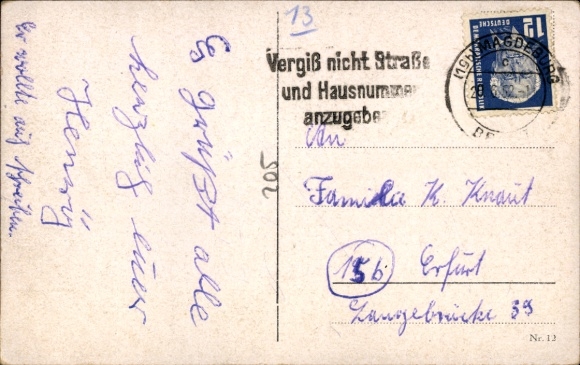 13
Vergiß nicht Straße
und Hausnummer
anzugeben
MAGDEBURG
DEUTSCHE
DEMOKRATISCHE REPUBLIK
12
Es grüßt alle
herzlig euer
Henrig
Er wollte auch schreiben.
205
An
Familie K. Knaut
(15b) Erfurt
Langebrücke 39
Nr. 12